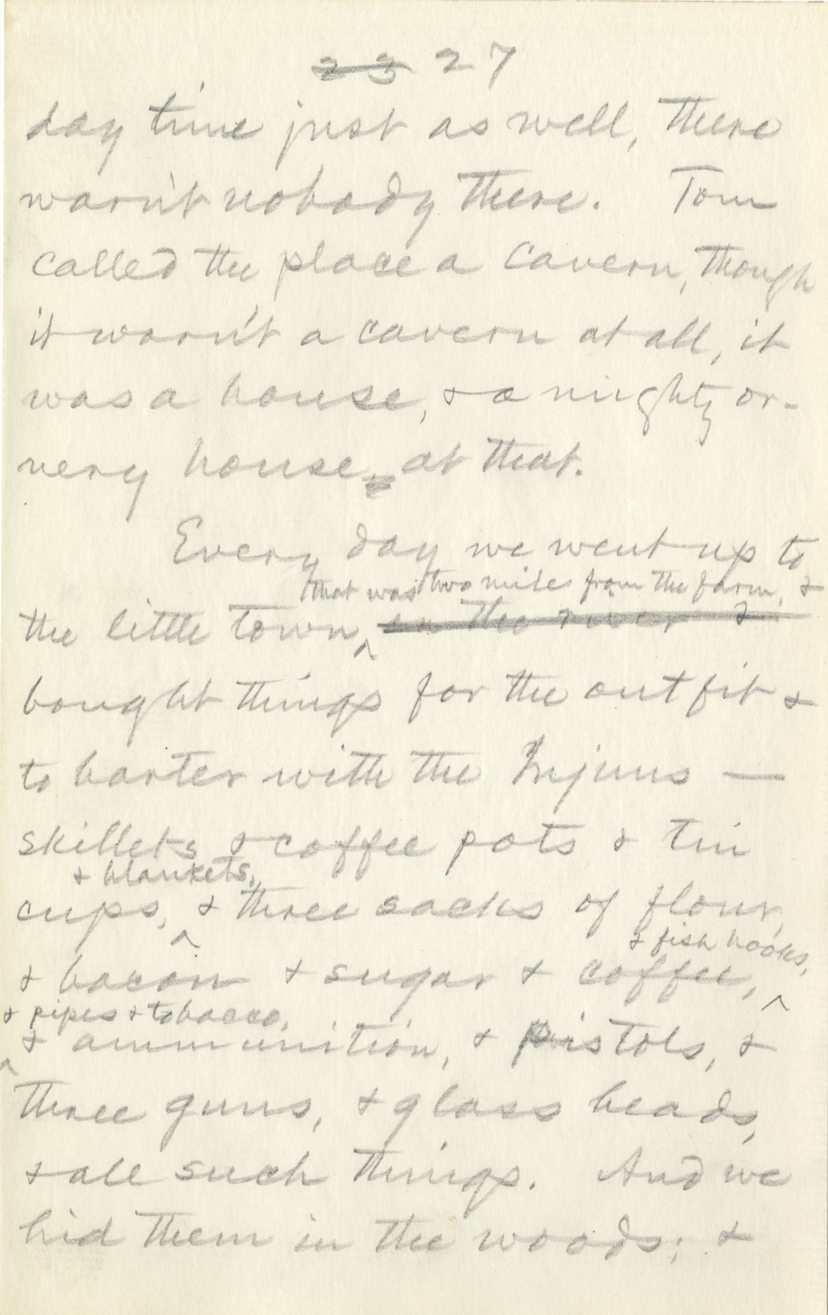 23 27
day time just as well, there
warn't nobody there. Tom
called the place a cavern, though
it warn't a cavern at all, it
was a house, & a mighty or-
nery house, at that.
Every day we went up to
that was two miles from the farm, &
the little town, on the river &
bought things for the outfit &
to barter with the Injuns —
skillets & coffee pots & tin
& blankets,
cups, & three sacks of flour,
& fish hooks,
& bacon & sugar & coffee,
& pipes & tobacco,
& ammunition, & pistols, &
three guns, & glass beads,
& all such things. And we
hid them in the woods; &